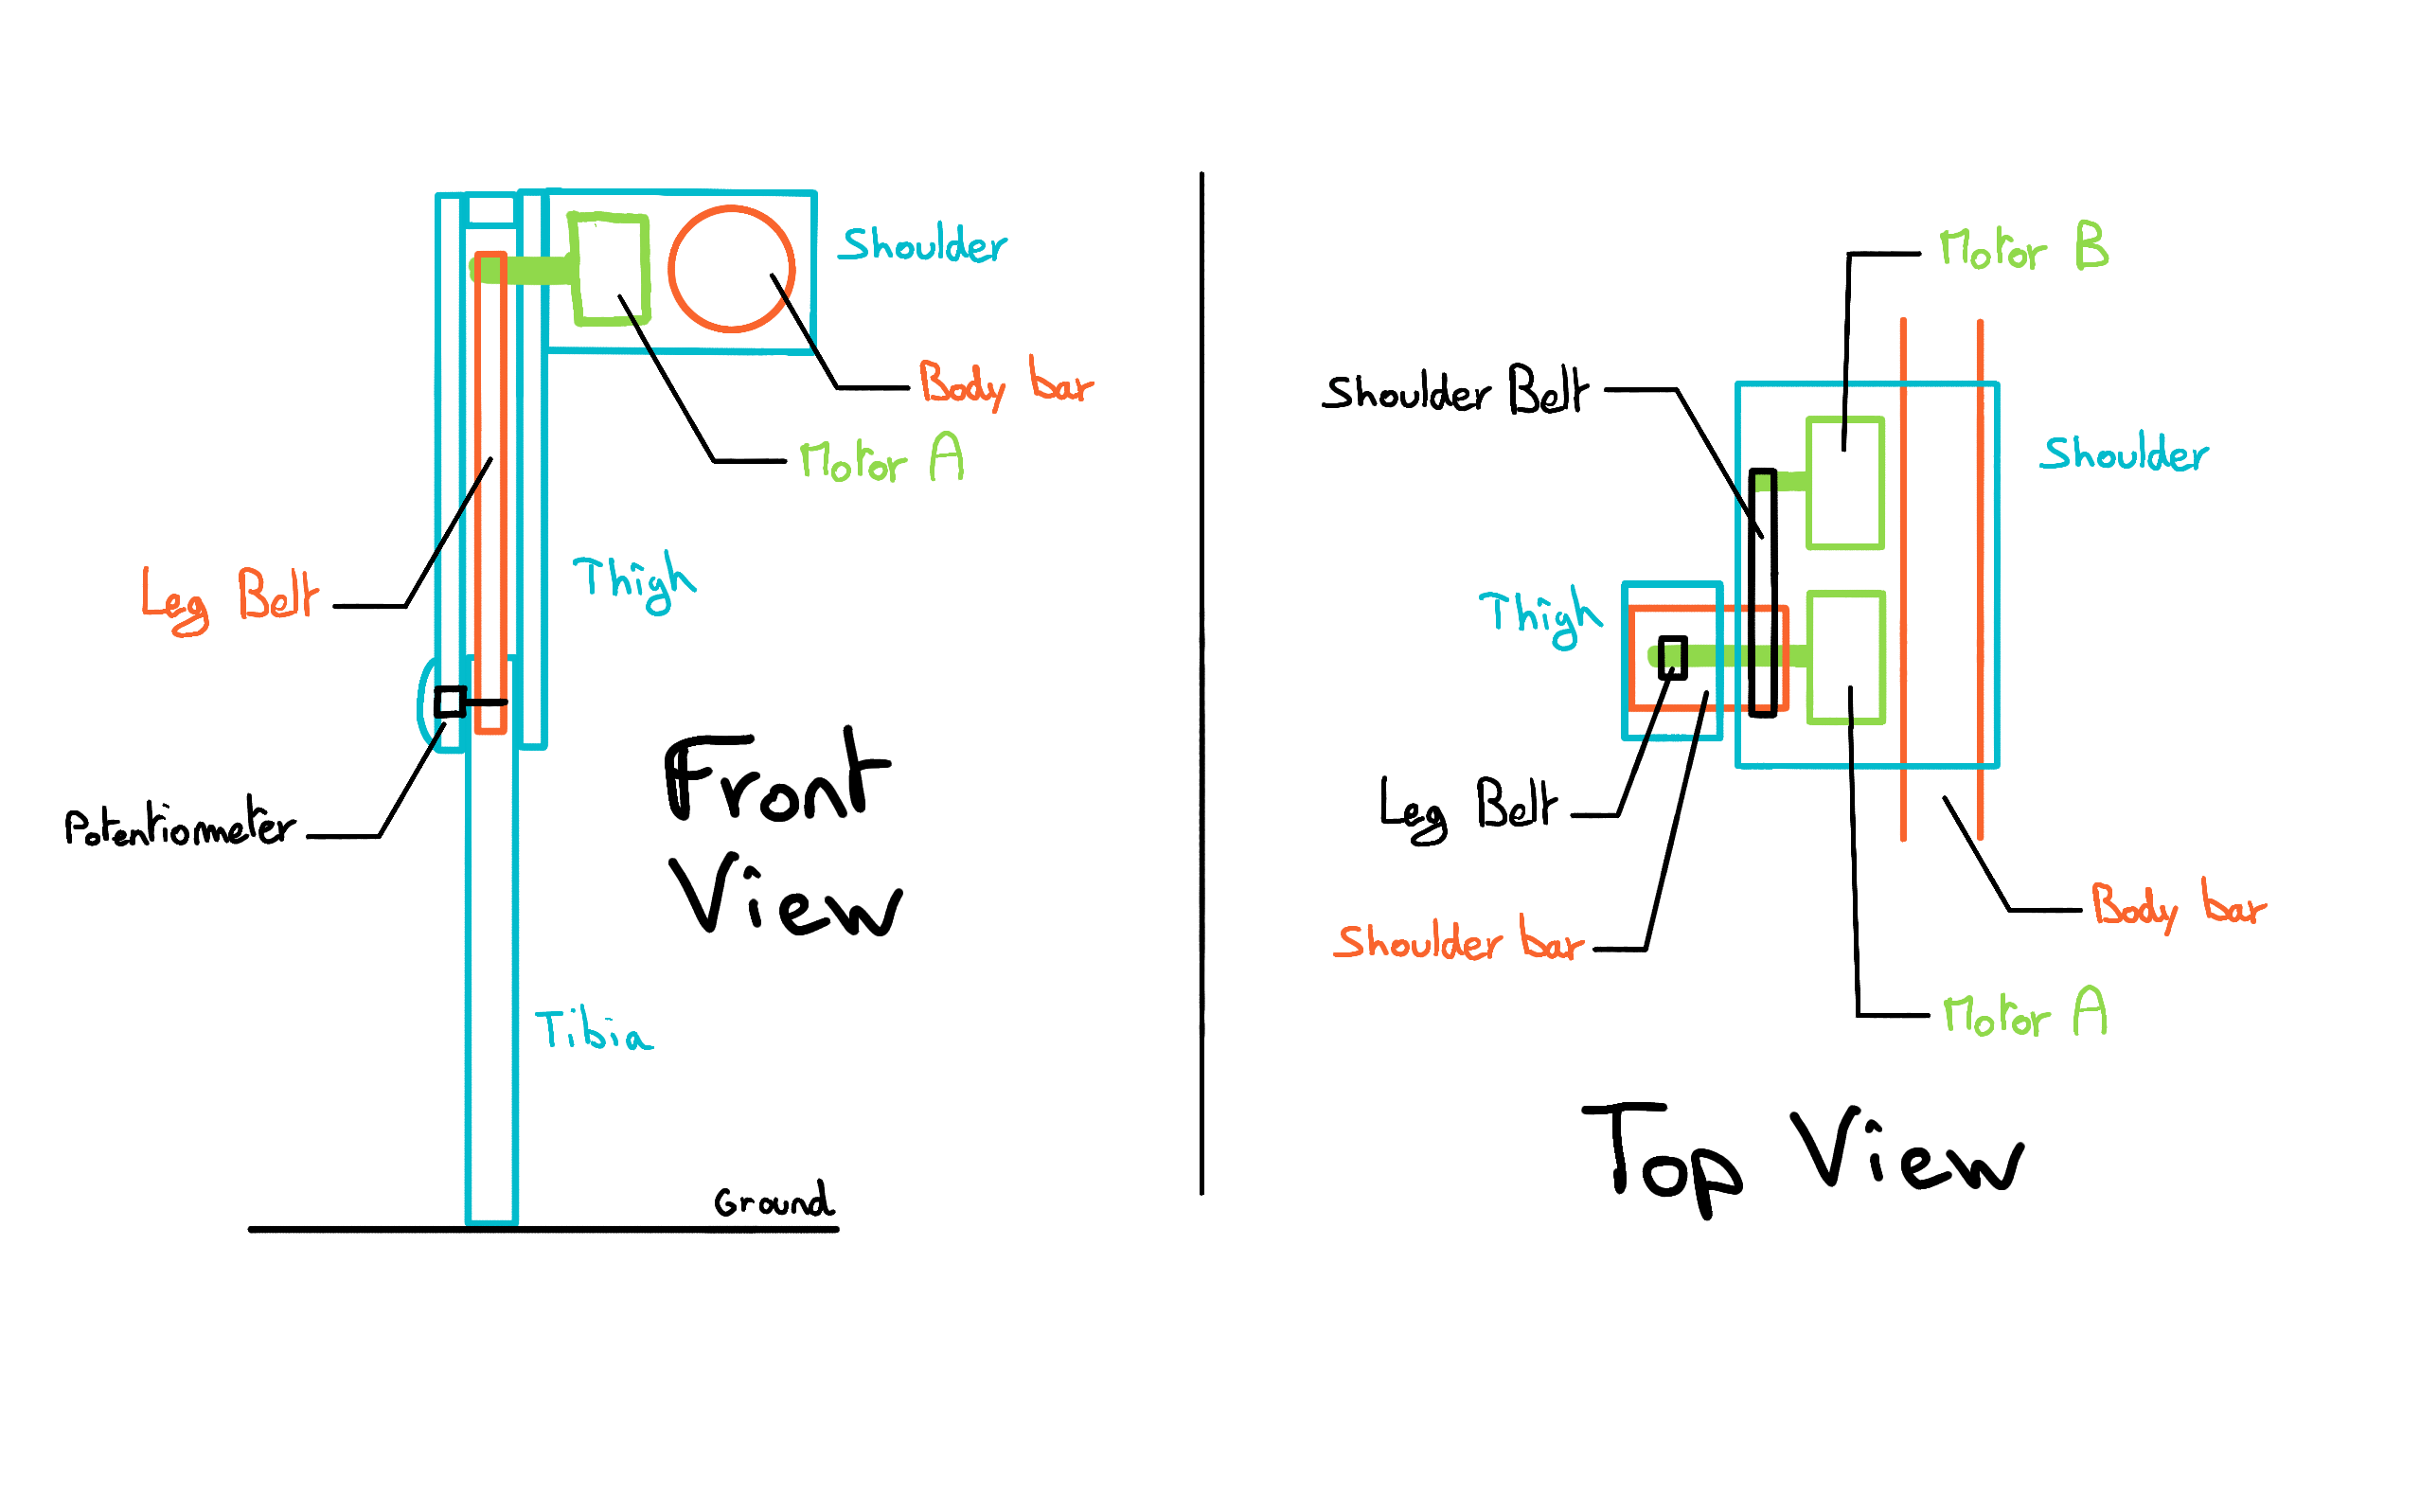 Shoulder
Body bar
Motor A
Leg Belt
Thigh
Potentiometer
Front
View
Tibia
Ground
Motor B
Shoulder Belt
Shoulder
Thigh
Leg Belt
Shoulder bar
Body bar
Motor A
Top View